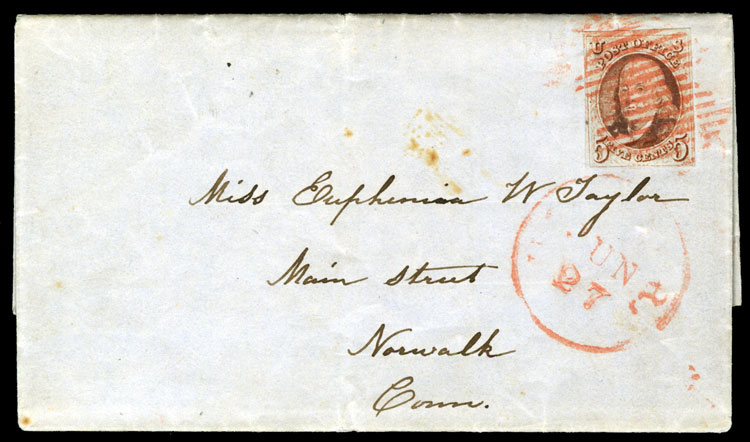 U S
POST OFFICE
5 FIVE CENTS 5
Miss Euphemia W Taylor
Main Street
Norwalk
Conn.
27